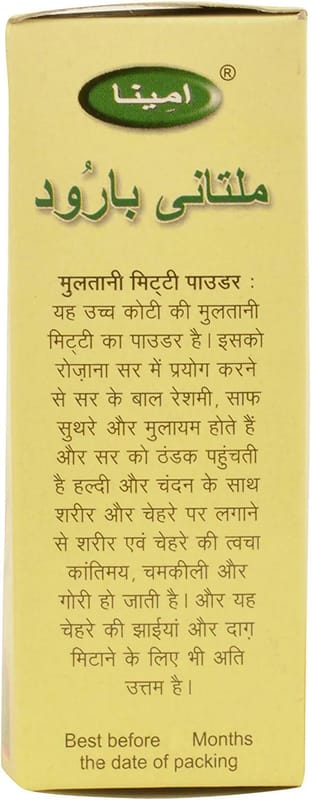 امینا ®
ملتانی بارُود
मुलतानी मिट्टी पाउडर :
यह उच्च कोटी की मुलतानी
मिट्टी का पाउडर है। इसको
रोज़ाना सर में प्रयोग करने
से सर के बाल रेशमी, साफ
सुथरे और मुलायम होते हैं
और सर को ठंडक पहुंचती
है हल्दी और चंदन के साथ
शरीर और चेहरे पर लगाने
से शरीर एवं चेहरे की त्वचा
कांतिमय, चमकीली और
गोरी हो जाती है। और यह
चेहरे की झाईयां और दाग़
मिटाने के लिए भी अति
उत्तम है।
Best before Months
the date of packing